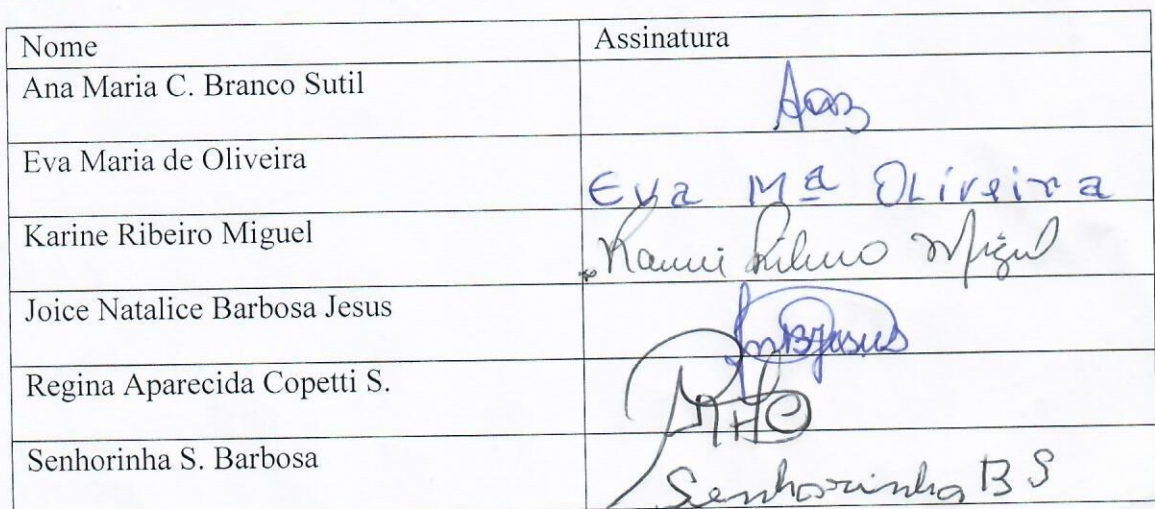 Nome Assinatura
Ana Maria C. Branco Sutil
Eva Maria de Oliveira Eva Mª OLiveira
Karine Ribeiro Miguel Karine Ribeiro Miguel
Joice Natalice Barbosa Jesus
Regina Aparecida Copetti S.
Senhorinha S. Barbosa Senhorinha B S